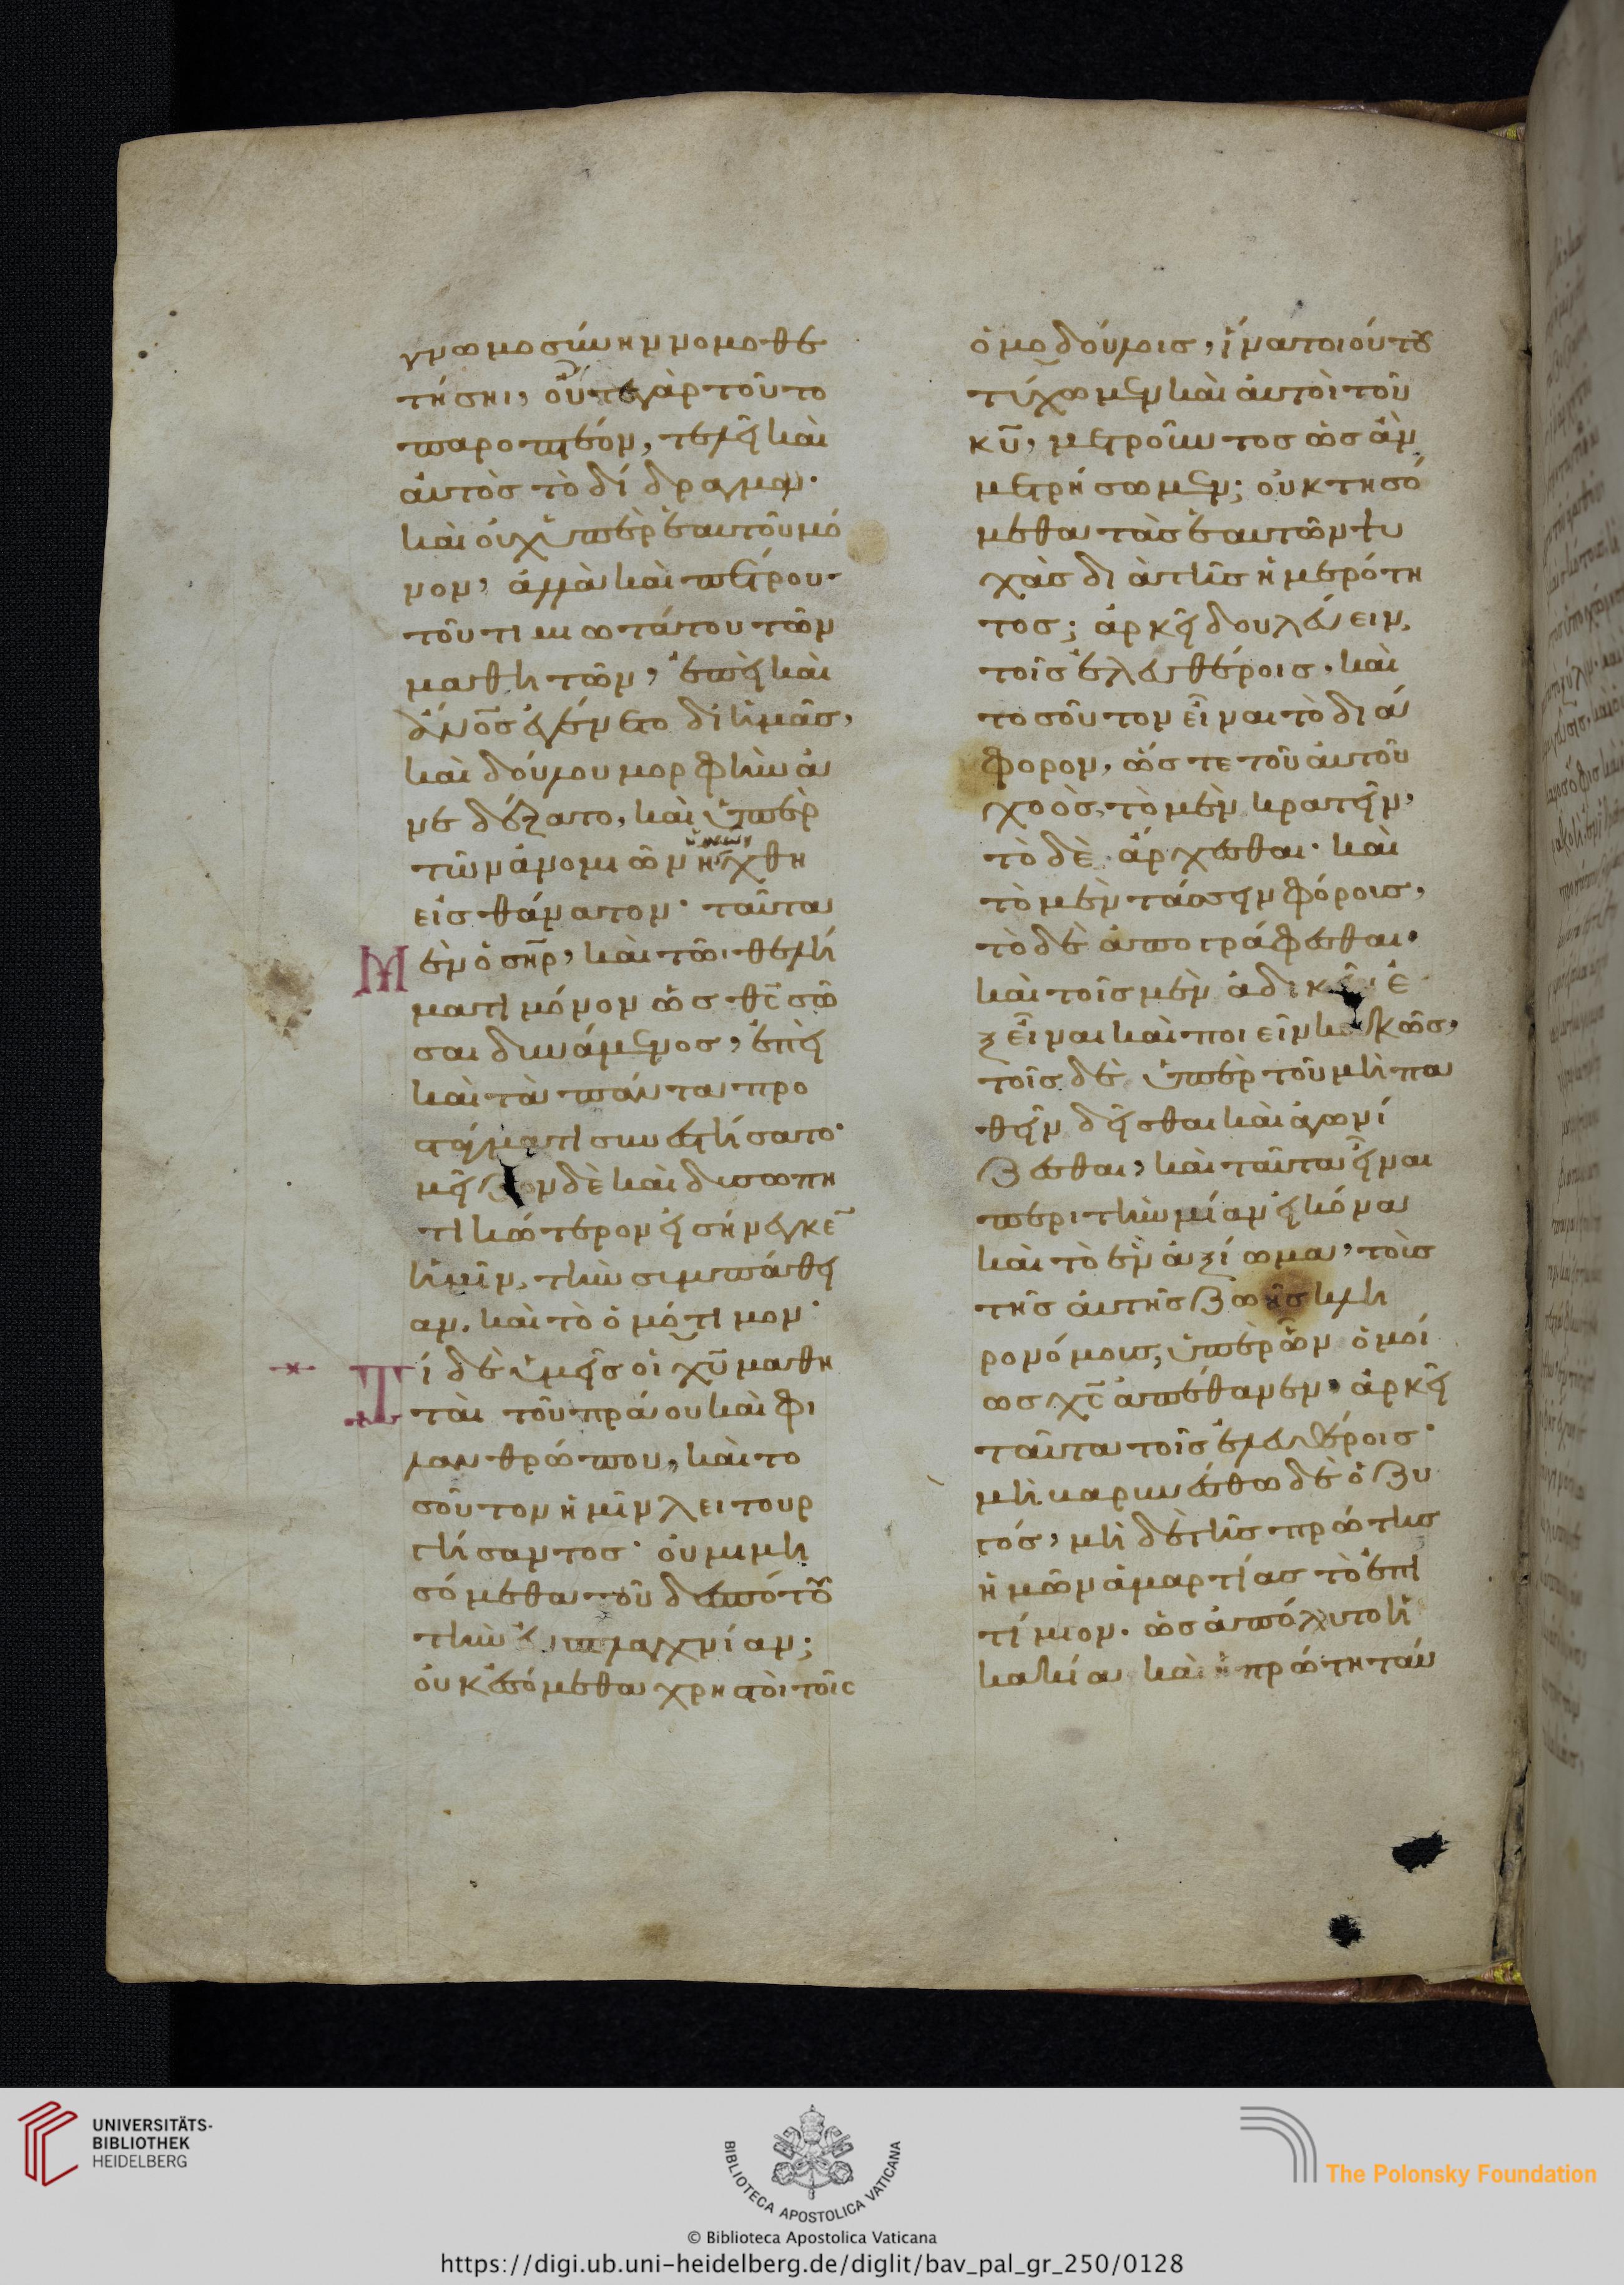 γνωμοσύνην νομοθε
τήσηι, οὔτε γὰρ τοῦτο
παροπτέον, τελεῖ καὶ
αὐτὸς τὸ δίδραγμα·
καὶ οὐχ ὑπὲρ ἑαυτοῦ μό
νον, ἀλλὰ καὶ πέτρου·
τοῦ τιμιωτάτου τῶν
μαθητῶν, ἐπεὶ καὶ
ἄνος ἐγένετο δι ἡμᾶς,
καὶ δούλου μορφὴν ἀ
νεδέξατο, καὶ ὑπὲρ
τῶν ἀνομιῶν ἡμῶν ἤχθη
εἰς θάνατον· ταῦτα
μὲν ὁ σηρ, καὶ τῶι θελή
ματι μόνον ὡς θς σῶ
σαι δυνάμενος, ἐπεὶ
καὶ τὰ πάντα προ
στάγματι συνεστήσατο·
μεῖζον δὲ καὶ δυσωπη
τικώτερον εἰσήνεγκεν
ἡμῖν, τὴν συμπάθει
αν, καὶ τὸ ὁμότιμον·
Τί δὲ ὑμεῖς οἱ χυ μαθη
ταὶ τοῦ πράου καὶ φι
λανθρώπου, καὶ το
σοῦτον ἡμῖν λειτουρ
γήσαντος· οὐ μιμη
σόμεθα τοῦ δεσπότου
τὴν εὐσπλαγχνίαν;
οὐκ ἐσόμεθα χρηστοὶ τοῖς
ὁμοδούλοις, ἵνα τοιούτου
τύχωμεν καὶ αὐτοὶ τοῦ
κυ, μετροῦντος ὡς ἂν
μετρήσωμεν; οὐ κτησό
μεθα τὰς ἑαυτῶν ψυ
χὰς διὰ τῆς ἡμερότη
τος; ἀρκεῖ δουλεύειν
τοῖς ἐλευθέροις, καὶ
τοσοῦτον εἶναι τὸ διά
φορον, ὥστε τοῦ αὐτοῦ
χοὸς, τὸ μὲν κρατεῖν,
τὸ δὲ ἄρχεσθαι· καὶ
τὸ μὲν τάσσειν φόροις,
τὸ δὲ ἀπογράφεσθαι·
καὶ τοῖς μὲν ἀδικεῖν ἐ
ξεῖναι καὶ ποιεῖν κακῶς,
τοῖς δὲ ὑπὲρ τοῦ μὴ πα
θεῖν δεῖσθαι καὶ ἀγωνί
ζεσθαι, καὶ ταῦτα εἶναι
περὶ τὴν μίαν εἰκόνα
καὶ τὸ ἓν ἀξίωμα, τοῖς
τῆς αὐτῆς ζωῆς κλη
ρονόμοις, ὑπὲρ ὧν ὁμοί
ως χς ἀπέθανεν· ἀρκεῖ
ταῦτα τοῖς ἐλευθέροις·
μὴ βαρυνέσθω δὲ ὁ ζυ
γός, μὴ δὲ τῆς πρώτης
ἡμῶν ἁμαρτίας τὸ ἐπι
τίμιον· ὡς ἀπόλοιτο ἡ
κακία καὶ ἡ πρώτη ταύ
UNIVERSITÄTS-
BIBLIOTHEK
HEIDELBERG
BIBLIOTECA APOSTOLICA VATICANA
The Polonsky Foundation
© Biblioteca Apostolica Vaticana
https://digi.ub.uni-heidelberg.de/diglit/bav_pal_gr_250/0128